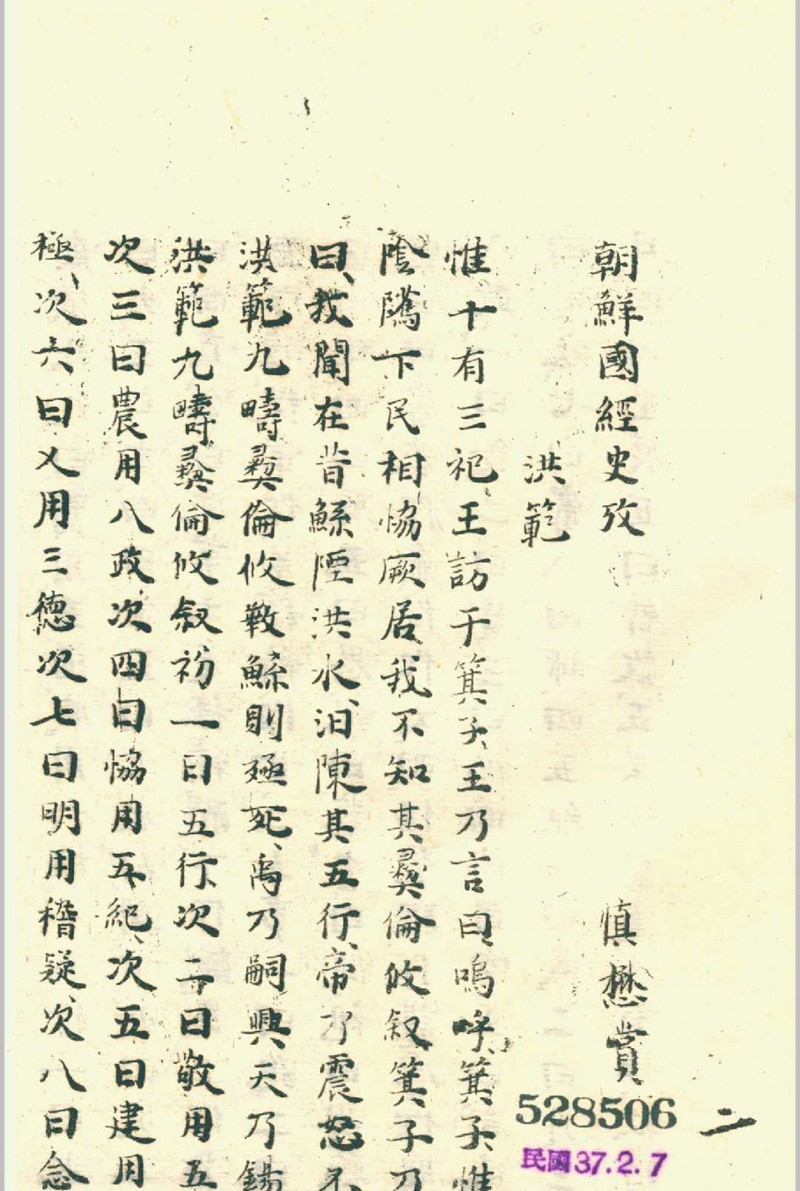 朝鮮國經史攷
慎懋賞
二
洪範
惟十有三祀王訪于箕子王乃言曰嗚呼箕子惟
陰隲下民相恊厥居我不知其彝倫攸叙箕子乃
曰我聞在昔鯀陻洪水汩陳其五行帝乃震怒不
洪範九疇彝倫攸斁鯀則殛死禹乃嗣興天乃錫
洪範九疇彝倫攸叙初一曰五行次二曰敬用五
次三曰農用八政次四曰恊用五紀次五曰建用
極次六曰乂用三德次七曰明用稽疑次八曰念
528506
民國37.2.7